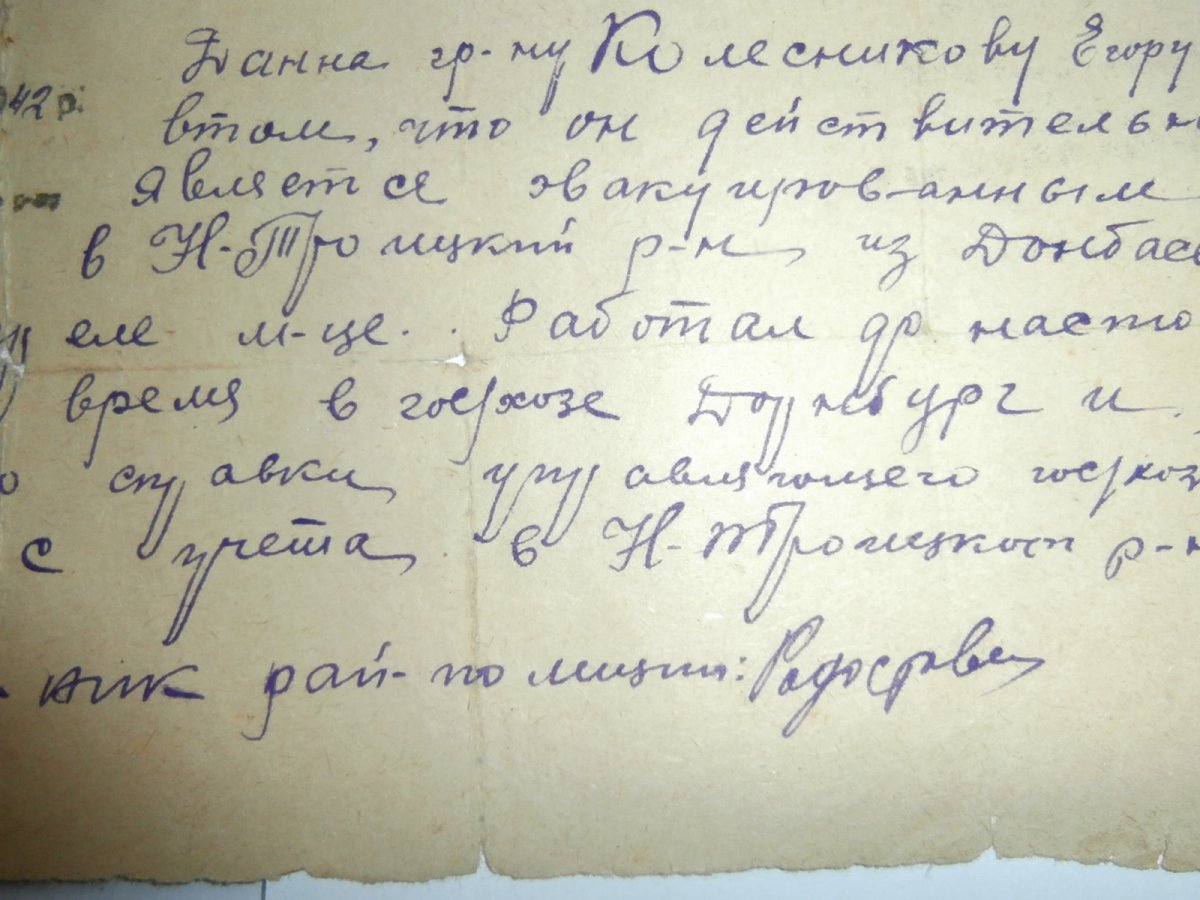 Данна гр-ну Колесникову Егору
42 р.
втом, что он действительн
является эвакуированным
в Н-Троицкий р-н из Донбас
еле м-це. Работал до насто
время в госхозе Доунбург и
справки управляющего госхоз
с учета в Н-Троицком р-н
ник рай-полиции: